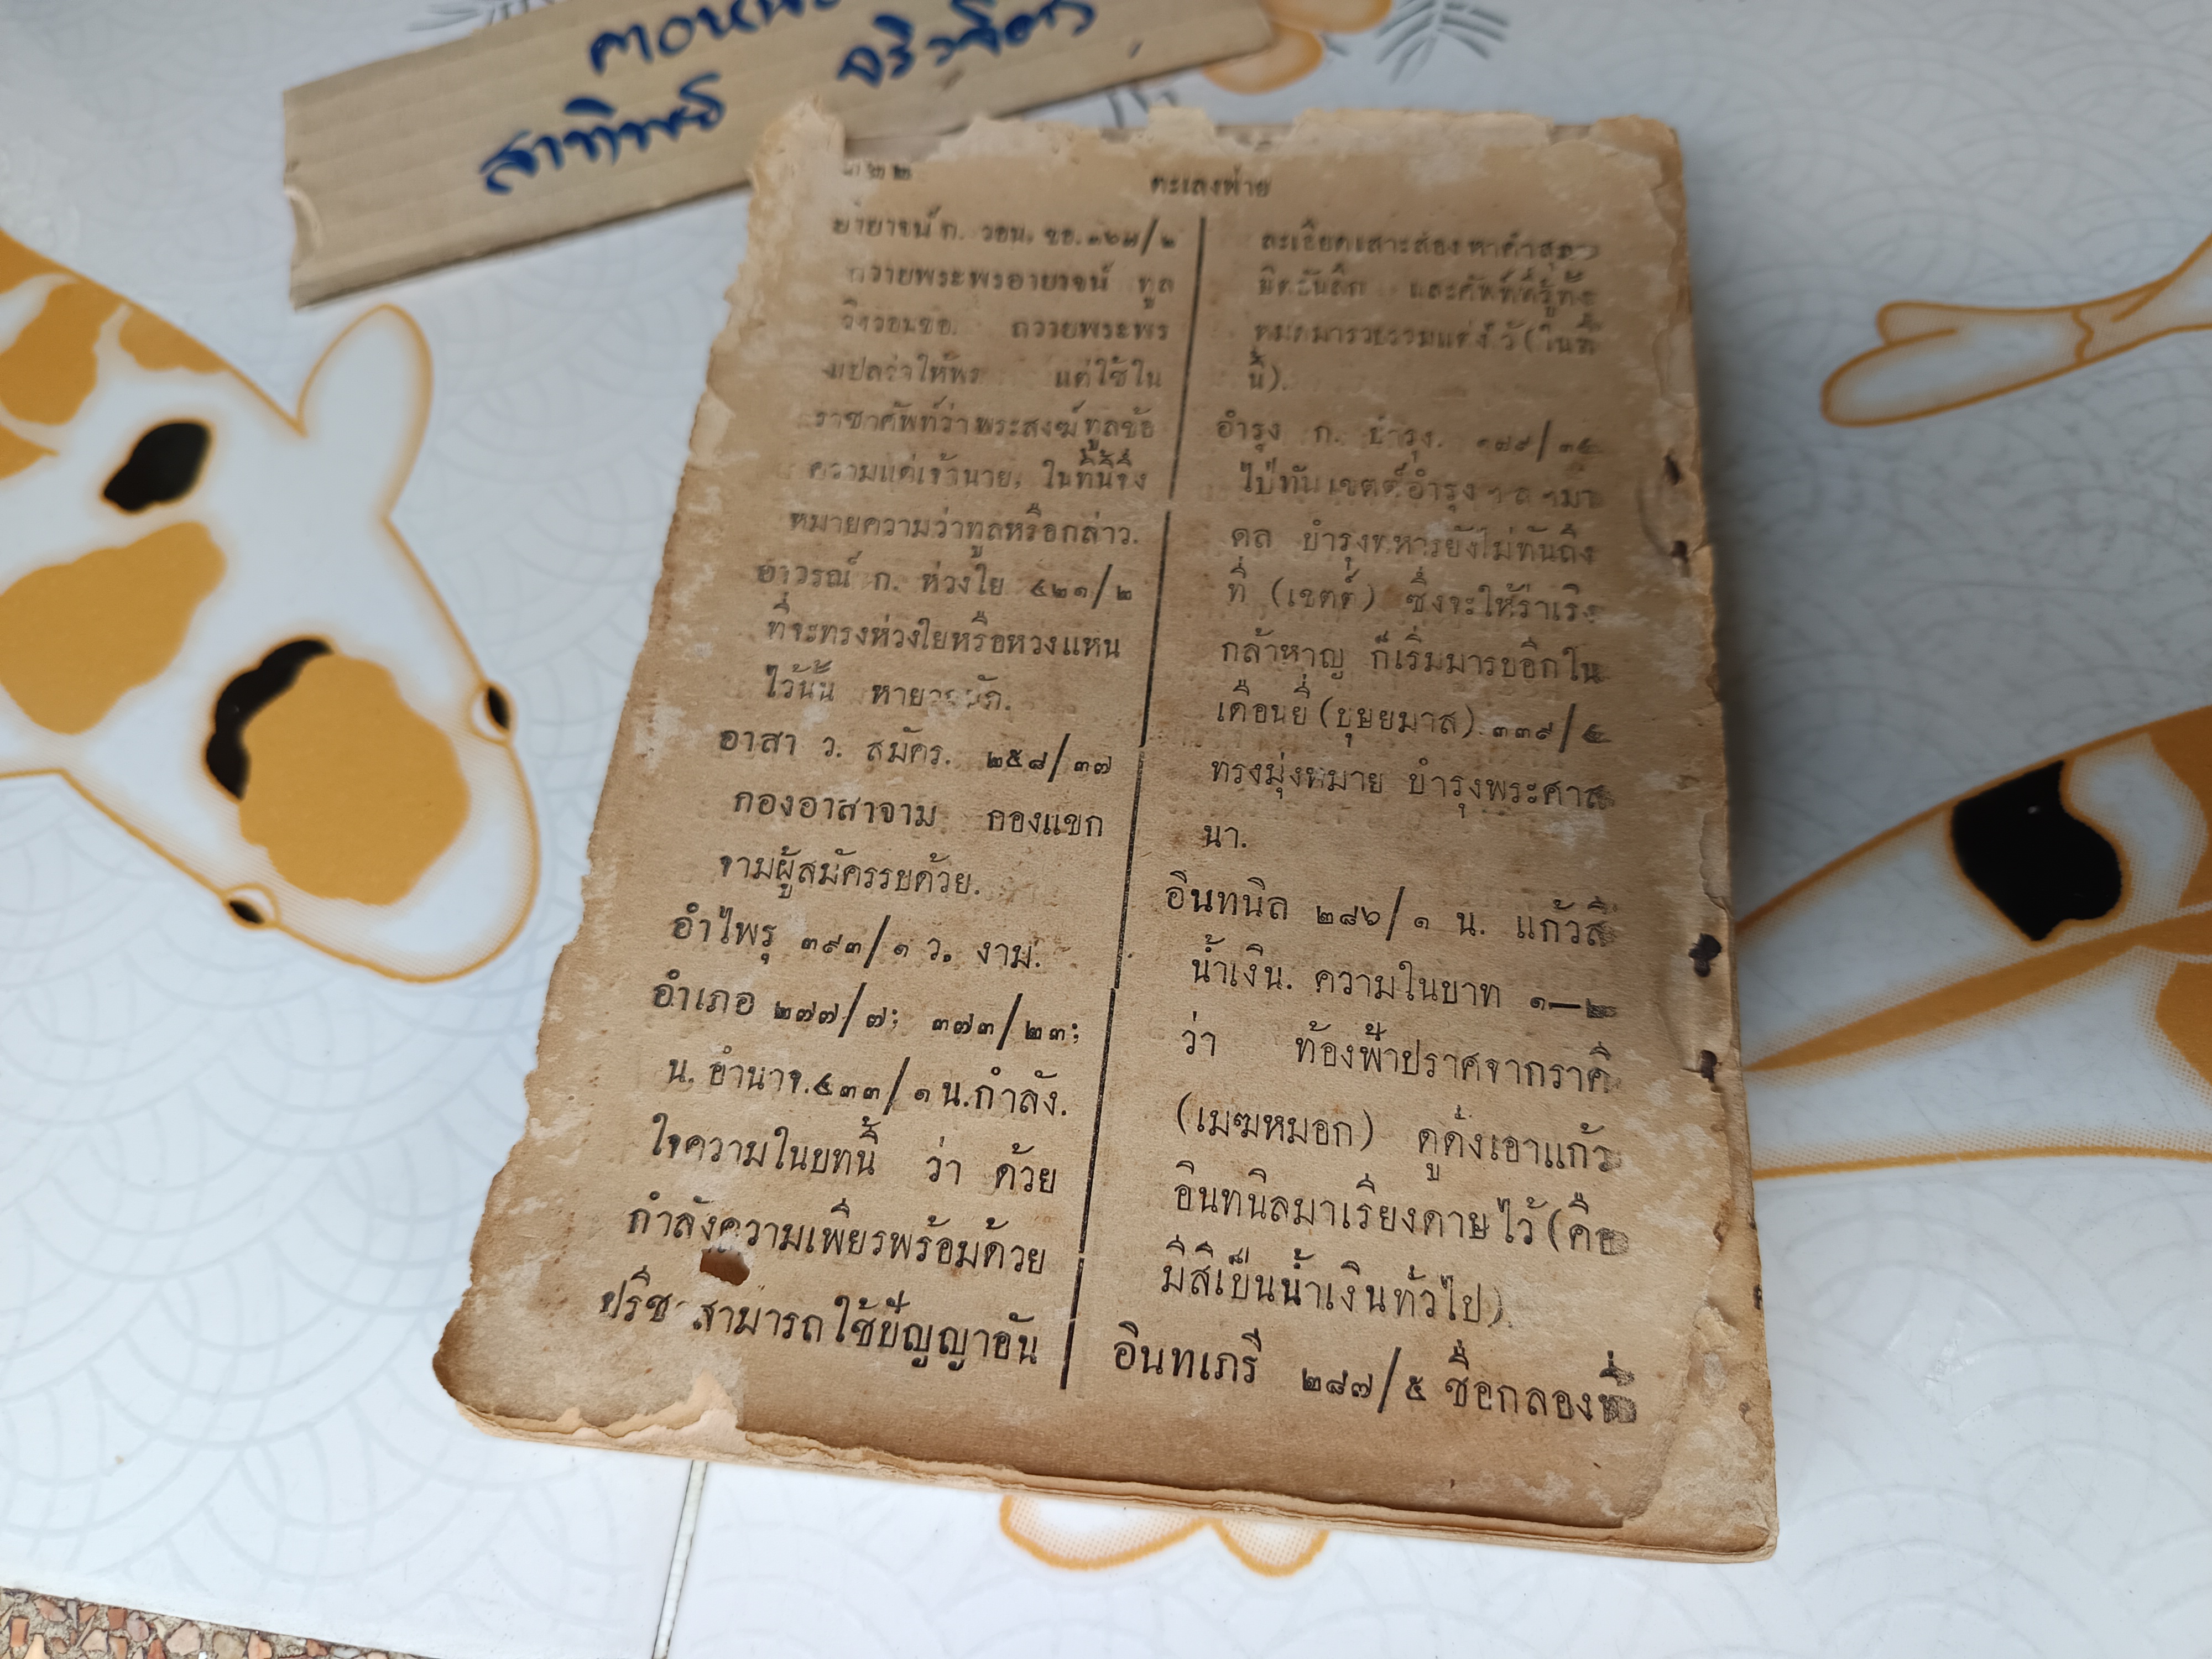 สาทิพย์
๓๒๒
ตะเลงพ่าย
ก. วอน, ขอ. ๓๖๗/๒
ถวายพระพรอายาจน์ ทูล
วิงวอนขอ. ถวายพระพร
แปลว่าให้พร แต่ใช้ใน
ราชาศัพท์ว่าพระสงฆ์ทูลข้อ
ความแด่เจ้านาย, ในที่นี้จึง
หมายความว่าทูลหรือกล่าว.
อาวรณ์ ก. ห่วงใย ๔๒๑/๒
ที่จะทรงห่วงใยหรือหวงแหน
ไว้นั้น
อาสา ว. สมัคร. ๒๕๘/๓๗
กองอาสาจาม กองแขก
จามผู้สมัครรบด้วย.
อำไพรุ ๓๙๓/๑ ว. งาม.
อำเภอ ๒๗๗/๗; ๓๗๓/๒๓;
น. อำนาจ. ๔๓๓/๑ น. กำลัง.
ใจความในบทนี้ ว่า ด้วย
กำลังความเพียรพร้อมด้วย
ปรีช สามารถใช้ปัญญาอัน
ละเอียดเสาะส่องหาคำสุ
และศัพท์ที่รู้ทั้ง
หมดมารวบรวมแต่งไว้ (ในที่
นี้).
อำรุง ก. บำรุง. ๑๗๙/๓๔
ไป่ทันเขตต์อำรุง
ดล บำรุงทหารยังไม่ทันถึง
ที่ (เขตต์) ซึ่งจะให้ร่าเริง
กล้าหาญ ก็เริ่มมารบอีกใน
เดือนยี่ (บุษยมาส). ๓๓๙/๔
ทรงมุ่งหมาย บำรุงพระศาส
นา.
อินทนิล ๒๘๖/๑ น. แก้วสี
น้ำเงิน. ความในบาท ๑—๒
ว่า ท้องฟ้าปราศจากราคี
(เมฆหมอก) ดูดั่งเอาแก้ว
อินทนิลมาเรียงดาษไว้ (คือ
มีสีเป็นน้ำเงินทั่วไป).
อินทเภรี ๒๘๗/๕ ชื่อกลองที่